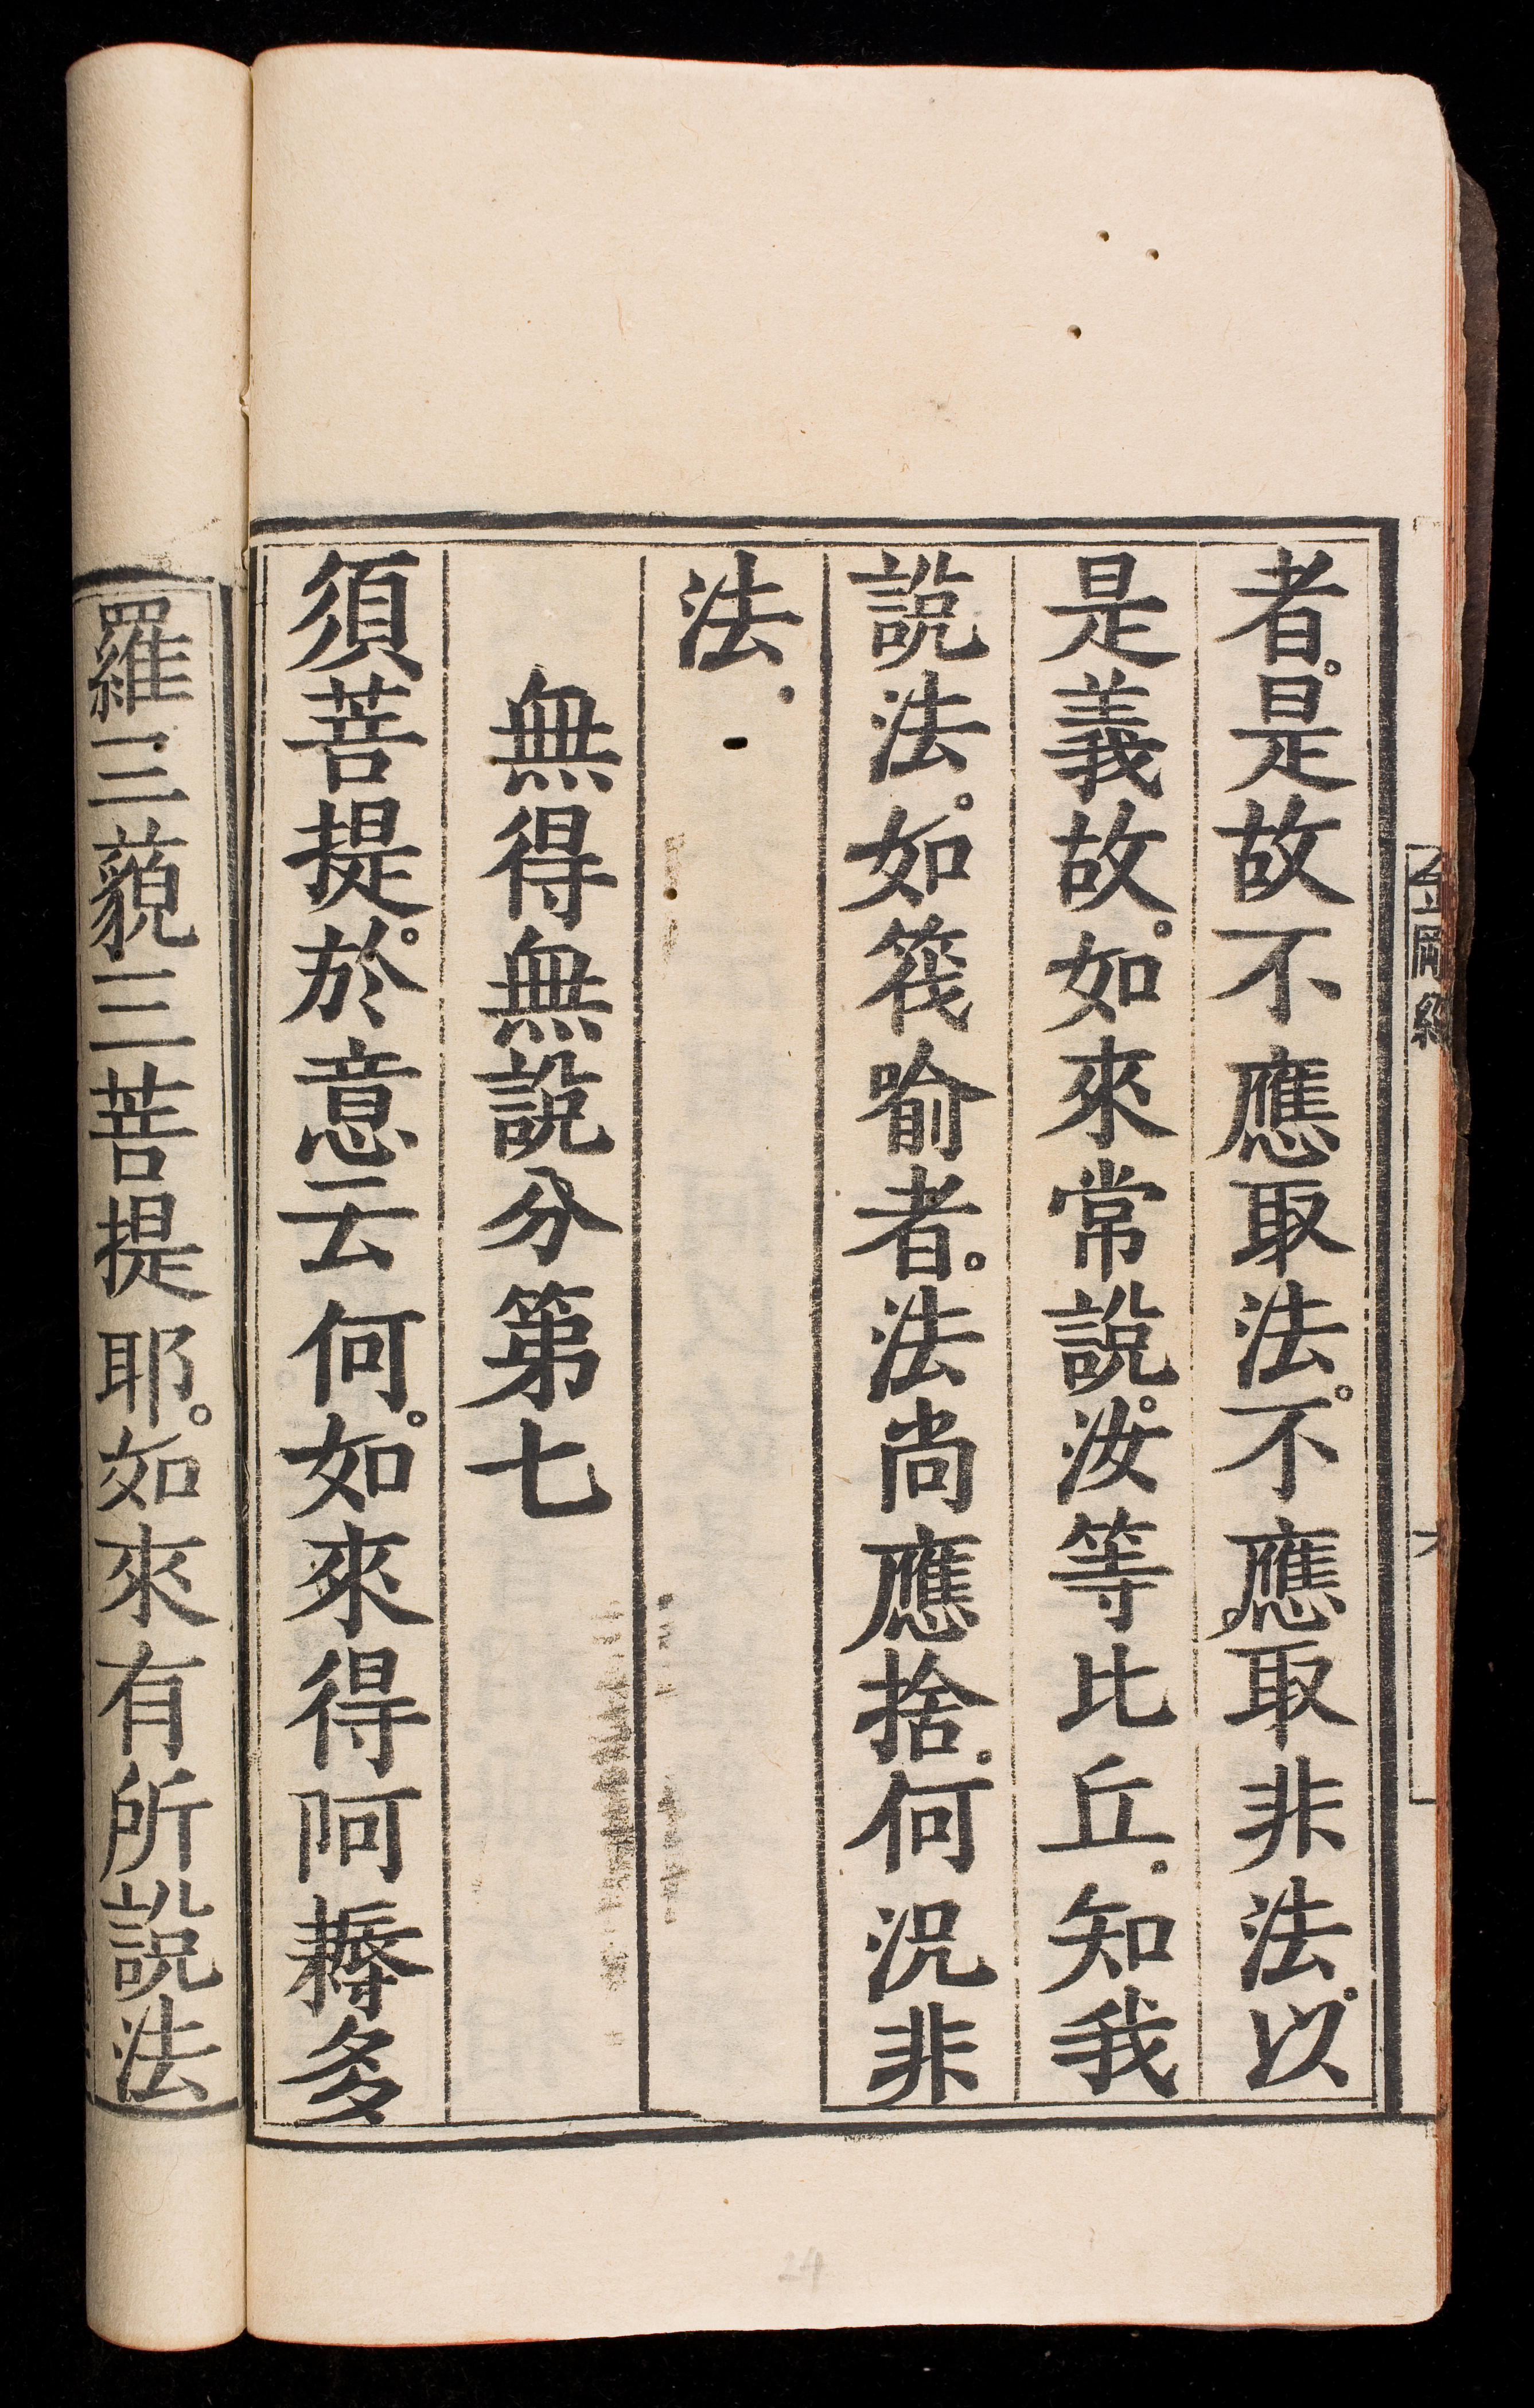 者。是故不應取法。不應取非法。以
是義故。如來常說。汝等比丘。知我
說法。如筏喻者。法尚應捨。何況非
法。
無得無說分第七
須菩提。於意云何。如來得阿耨多
羅三藐三菩提耶。如來有所說法
24